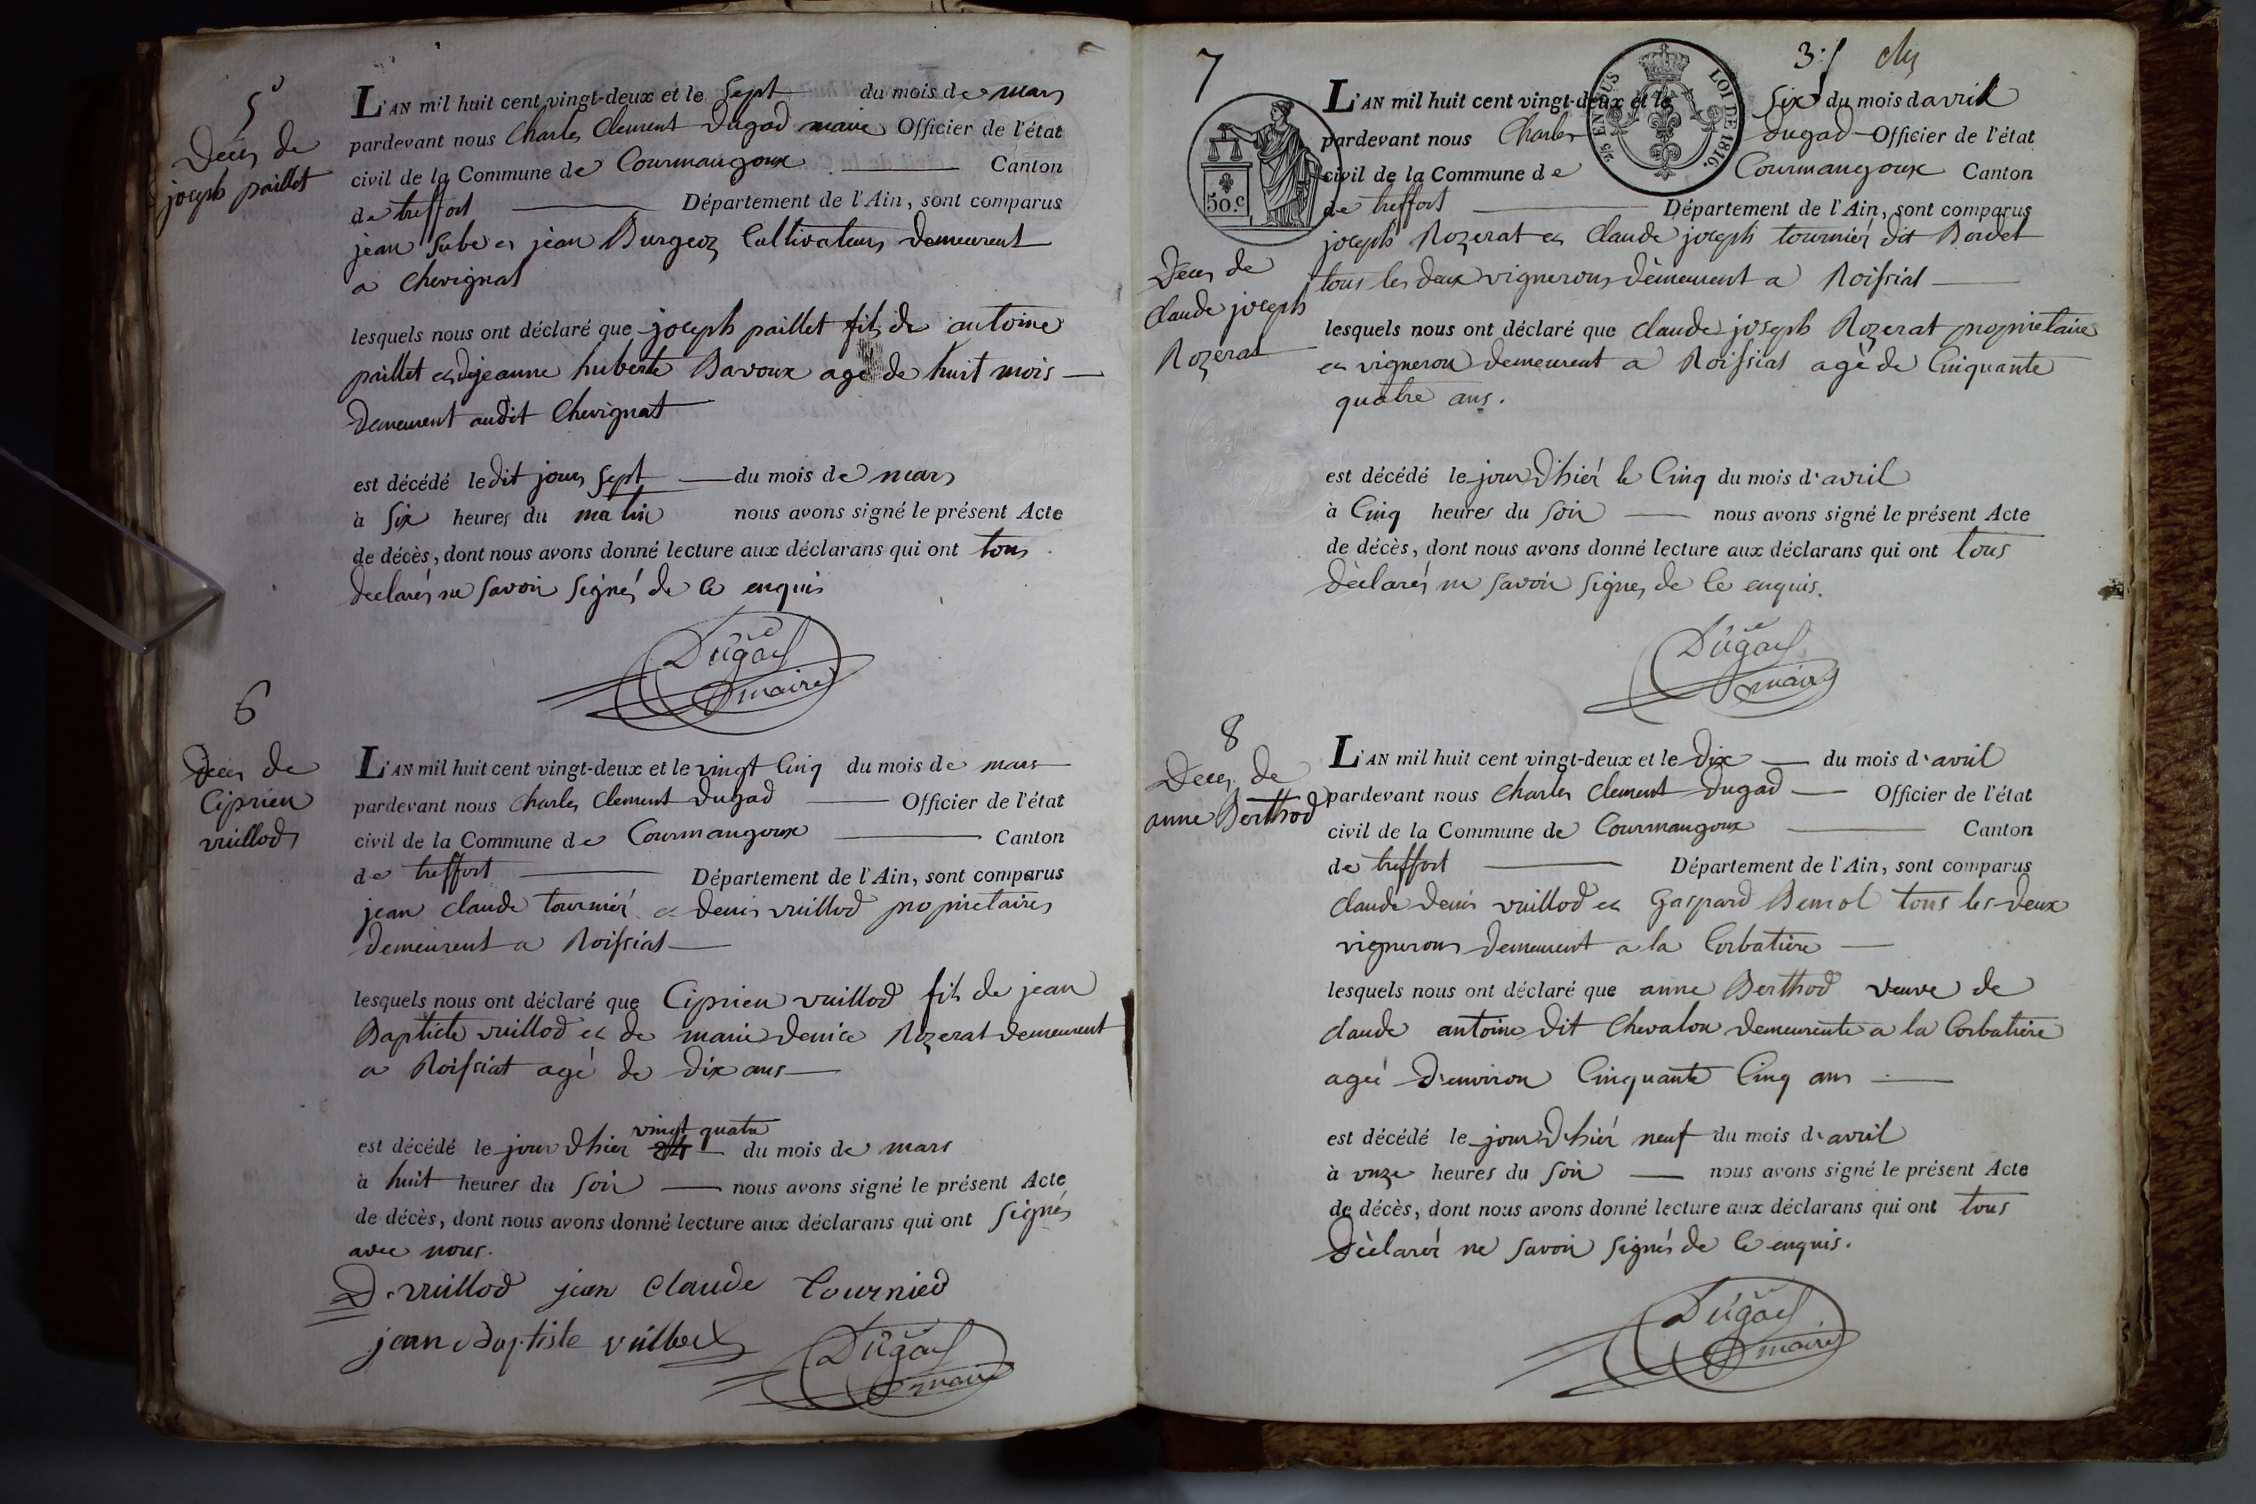 5
Deces de
joseph paillet
L'AN mil huit cent vingt-deux et le sept du mois de mars
pardevant nous Charles Clement Dugad maire Officier de l'état
civil de la Commune de Courmangoux Canton
de treffort Département de l'Ain, sont comparus
jean Sube et jean Burgeoz Cultivateurs demeurent
a Chevignat
lesquels nous ont déclaré que joseph paillet fils de antoine
paillet et de jeanne huberte Davoux agé de huit mois
demeurent audit Chevignat
est décédé le dit jour sept du mois de mars
à six heures du matin nous avons signé le présent Acte
de décès, dont nous avons donné lecture aux déclarans qui ont tous
declarés ne savoir signés de ce enquis
Dugad
maire
6
Deces de
Ciprien
vuillod
L'AN mil huit cent vingt-deux et le vingt Cinq du mois de mars
pardevant nous Charles Clement Dugad Officier de l'état
civil de la Commune de Courmangoux Canton
de treffort Département de l'Ain, sont comparus
jean claude tournier et denis vuillod propriétaires
demeurent a Roissiat
lesquels nous ont déclaré que Ciprien vuillod fils de jean
Baptiste vuillod et de marie denice Rozerat demeurent
a Roissiat agé de dix ans
vingt quatre
est décédé le jour dhier 24 du mois de mars
à huit heures du soir nous avons signé le présent Acte
de décès, dont nous avons donné lecture aux déclarans qui ont signés
avec nous.
D. vuillod jean Claude Tournied
jean Baptiste vuillod
Dugad
maire
7
3.
50.c
2/5 EN SUS LOI DE 1816.
Deces de
claude joseph
Rozerat
L'AN mil huit cent vingt-deux et le six du mois d avril
pardevant nous Charles Dugad Officier de l'état
civil de la Commune de Courmangoux Canton
de treffort Département de l'Ain, sont comparus
joseph Rozerat et Claude joseph tournier dit Bordet
tous les deux vignerons demeurent a Roissiat
lesquels nous ont déclaré que claude joseph Rozerat propriétaire
et vigneron demeurent a Roissiat agé de Cinquante
quatre ans.
est décédé le jour d'hier le Cinq du mois d'avril
à Cinq heures du soir nous avons signé le présent Acte
de décès, dont nous avons donné lecture aux déclarans qui ont tous
déclarés ne savoir signés de ce enquis.
Dugad
maire
8
Deces de
anne Berthod
L'AN mil huit cent vingt-deux et le dix du mois d'avril
pardevant nous Charles Clement Dugad Officier de l'état
civil de la Commune de Courmangoux Canton
de treffort Département de l'Ain, sont comparus
claude denis vuillod et Gaspard Bemol tous les deux
vignerons demeurent a la Corbatiere
lesquels nous ont déclaré que anne Berthod veuve de
claude antoine dit Chevalon demeurente a la Corbatiere
ageé d'environ Cinquante Cinq ans
est décédé le jour d'hier neuf du mois d'avril
à onze heures du soir nous avons signé le présent Acte
de décès, dont nous avons donné lecture aux déclarans qui ont tous
déclarés ne savoir signés de ce enquis.
Dugad
maire